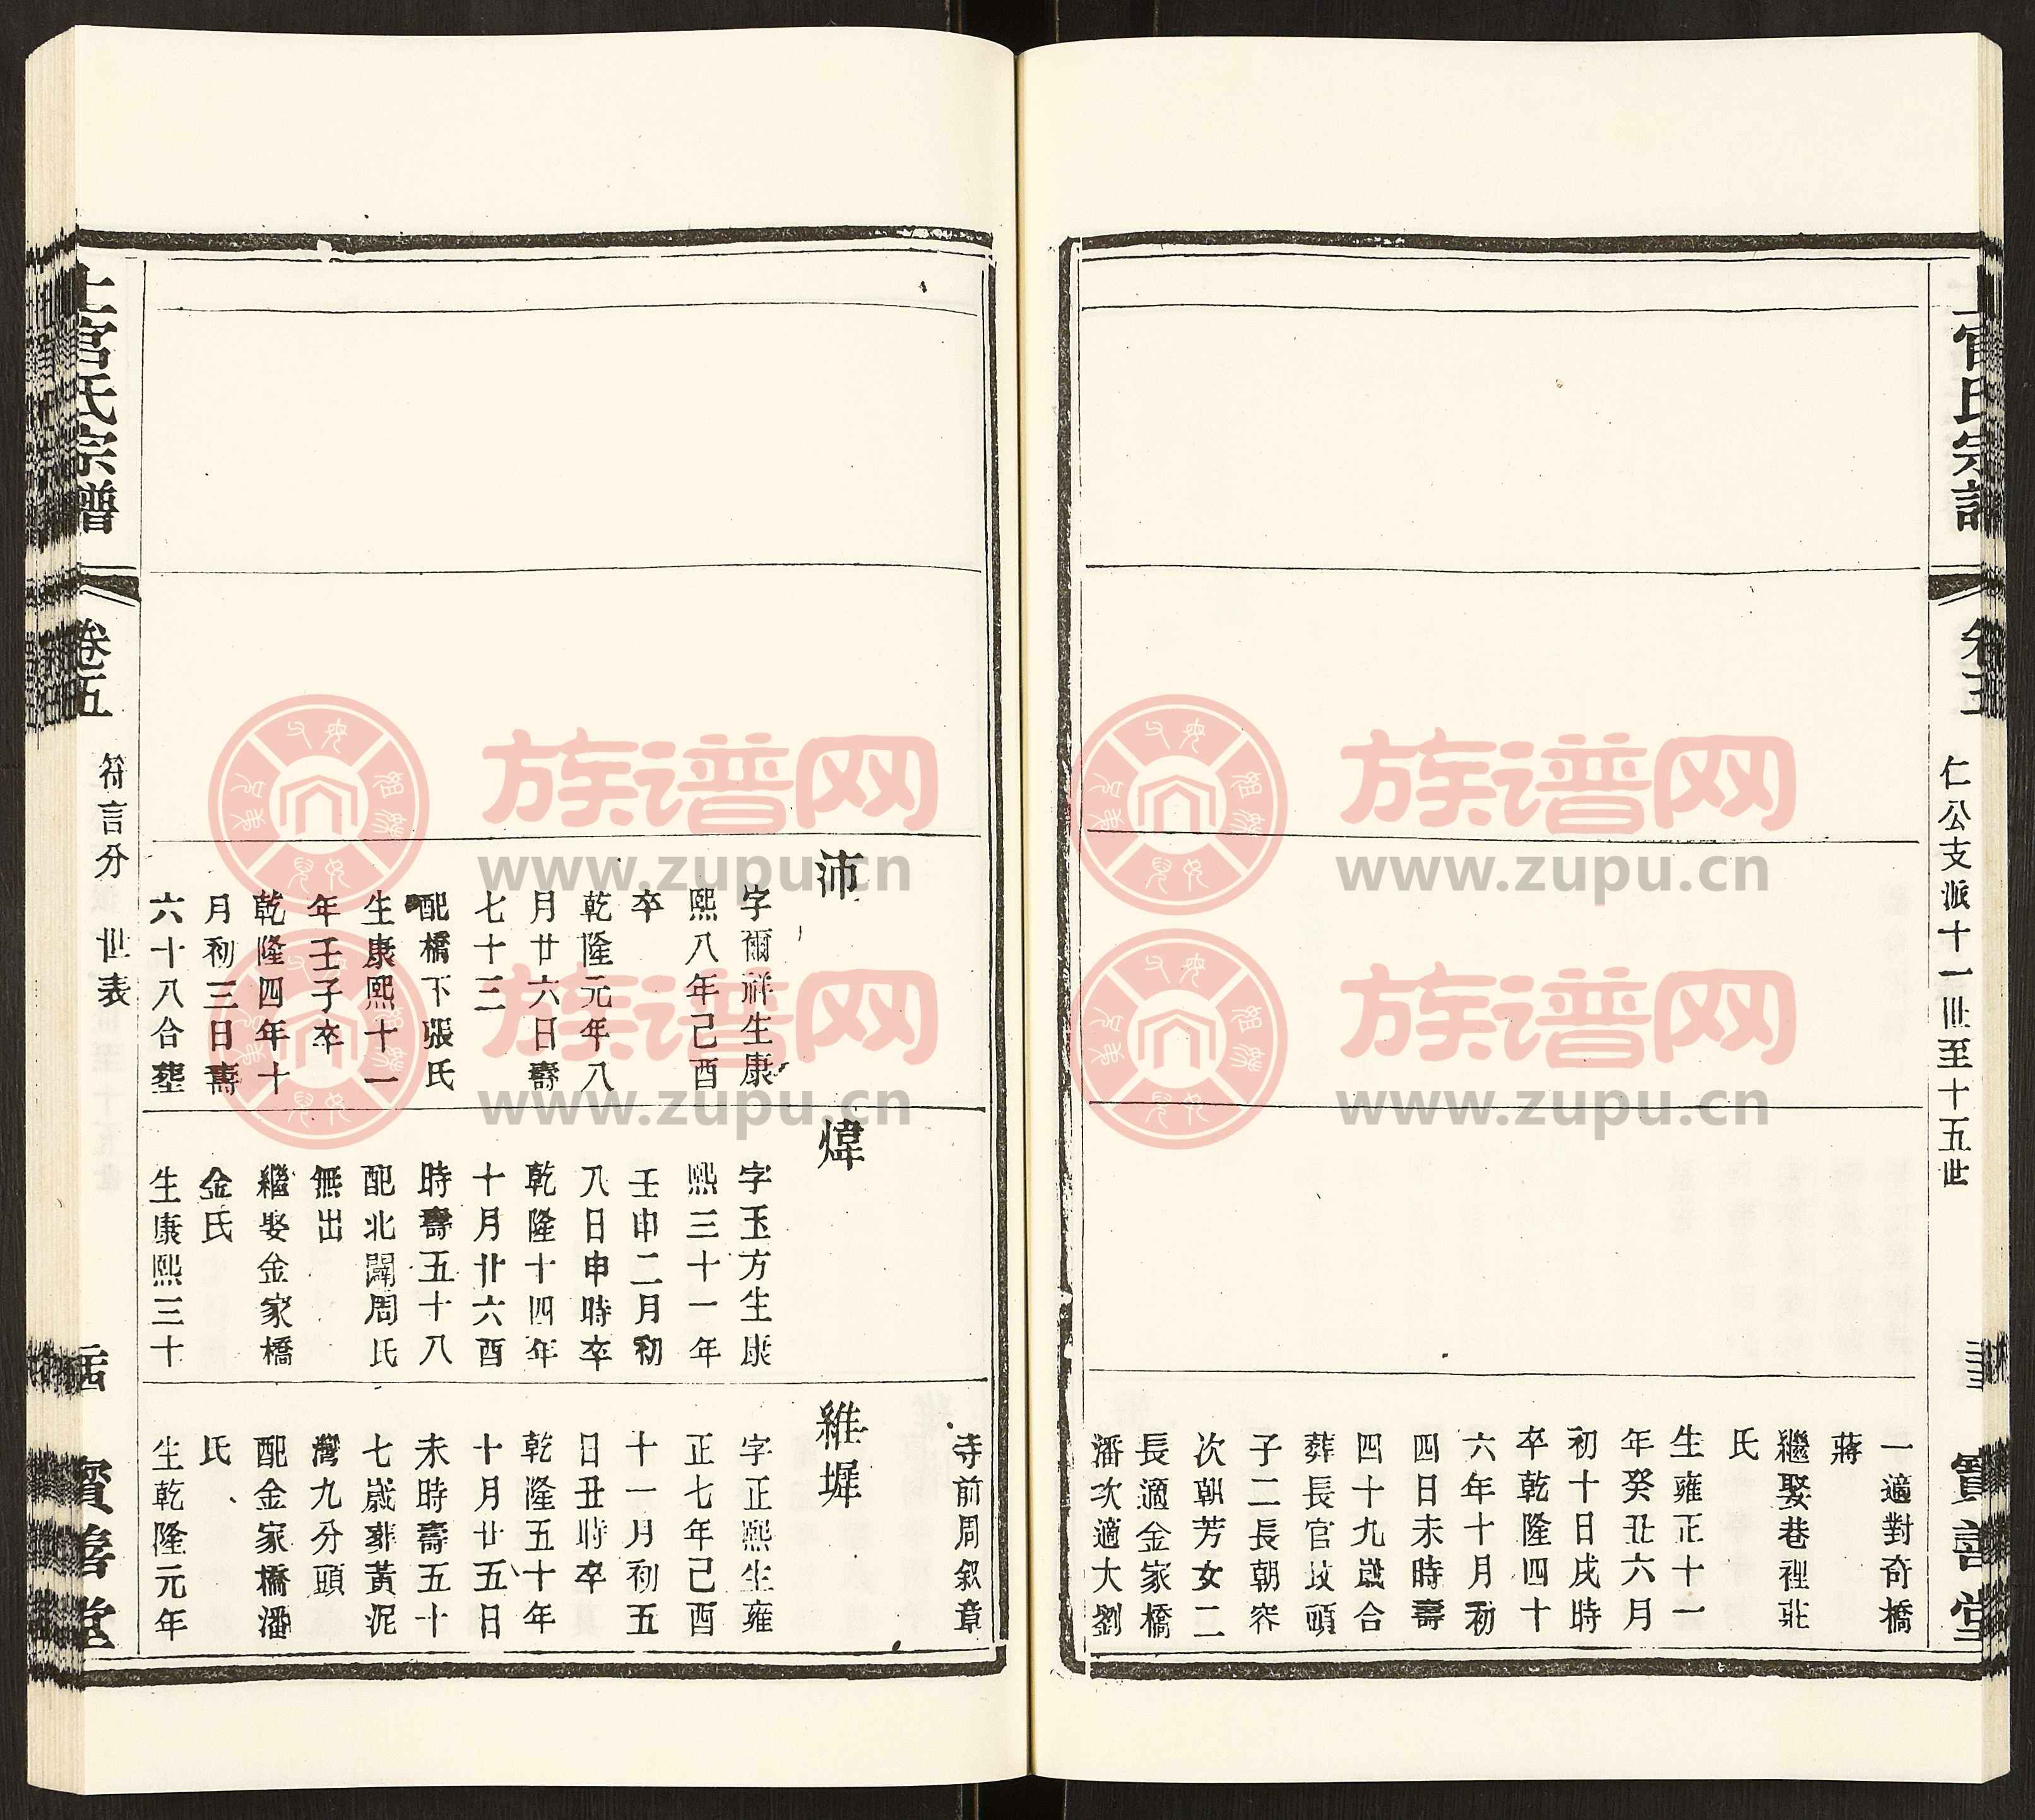 官氏宗譜
卷五
仁公支派十一世至十五世
寶善堂
一適對奇橋
蔣
繼娶巷裡莊
氏
生雍正十一
年癸丑六月
初十日戌時
卒乾隆四十
六年十月初
四日未時壽
四十九歲合
葬長官坟頭
子二長朝容
次朝芳女二
長適金家橋
潘次適大劉
寺前周叙章
沛
字爾祥生康
熙八年己酉
卒
乾隆元年八
月廿六日壽
七十三
配橋下張氏
生康熙十一
年壬子卒
乾隆四年十
月初三日壽
六十八合塟
煒
字玉方生康
熙三十一年
壬申二月初
八日申時卒
乾隆十四年
十月廿六酉
時壽五十八
配北閘周氏
無出
繼娶金家橋
金氏
生康熙三十
維墀
字正熙生雍
正七年己酉
十一月初五
日丑時卒
乾隆五十年
十月廿五日
未時壽五十
七歲葬黃泥
灣九分頭
配金家橋潘
氏
生乾隆元年
上官氏宗譜
卷五
符言分
世表
寶善堂
族谱网
www.zupu.cn
族谱网
www.zupu.cn
族谱网
www.zupu.cn
族谱网
www.zupu.cn